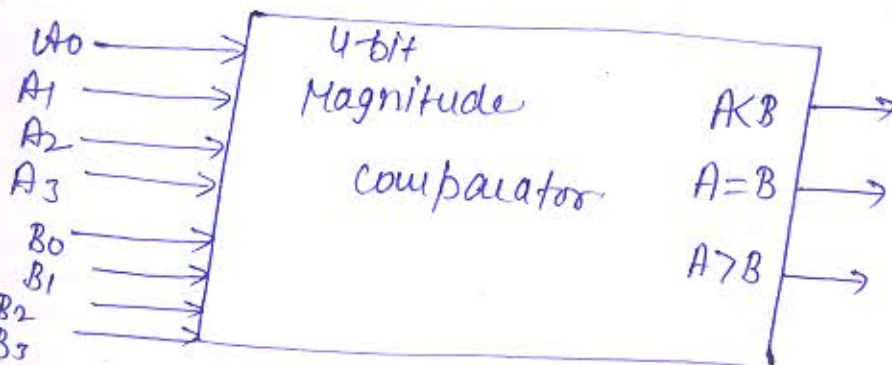 A0
A1
A2
A3
B0
B1
B2
B3
4-bit
Magnitude
comparator
A<B
A=B
A>B